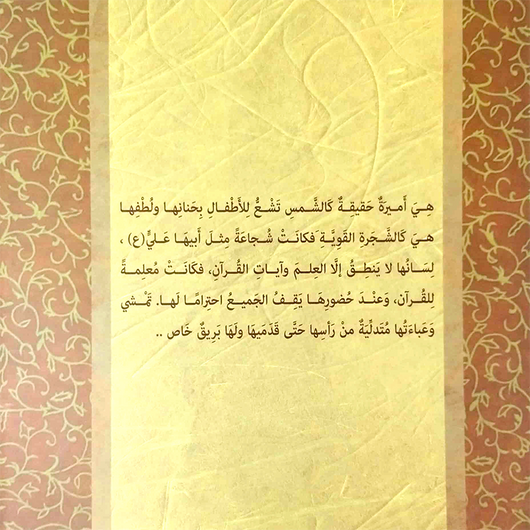 هِيَ أَمـيرَةٌ حَقيقِـةٌ كَالشَّـمسِ تَشْـعُّ لِلأَطْفـالِ بِحَنانِهـا ولُطْفِهـا
هـيَ كَالشَّـجَرةِ القَوِيَّـةِ فَكانَـتْ شُـجاعَةً مِثـلَ أَبيهَـا عَـليٍّ(ع) ،
لِسَـانُها لا يَنطـقُ إلَّا العِلـمَ وآيـاتِ القُـرآنِ، فكَانَـتْ مُعلِمـةً
للقُـرآن، وَعنْـدَ حُضورِهَـا يَقِـفُ الجَميـعُ احتِرامًـا لَهـا. تَمْـشي
وَعَباءَتُها مُتَدلِّيَةٌ منْ رَأسِها حَتَّى قَدَمَيهَا ولَهَا بَرِيقٌ خَاص ..